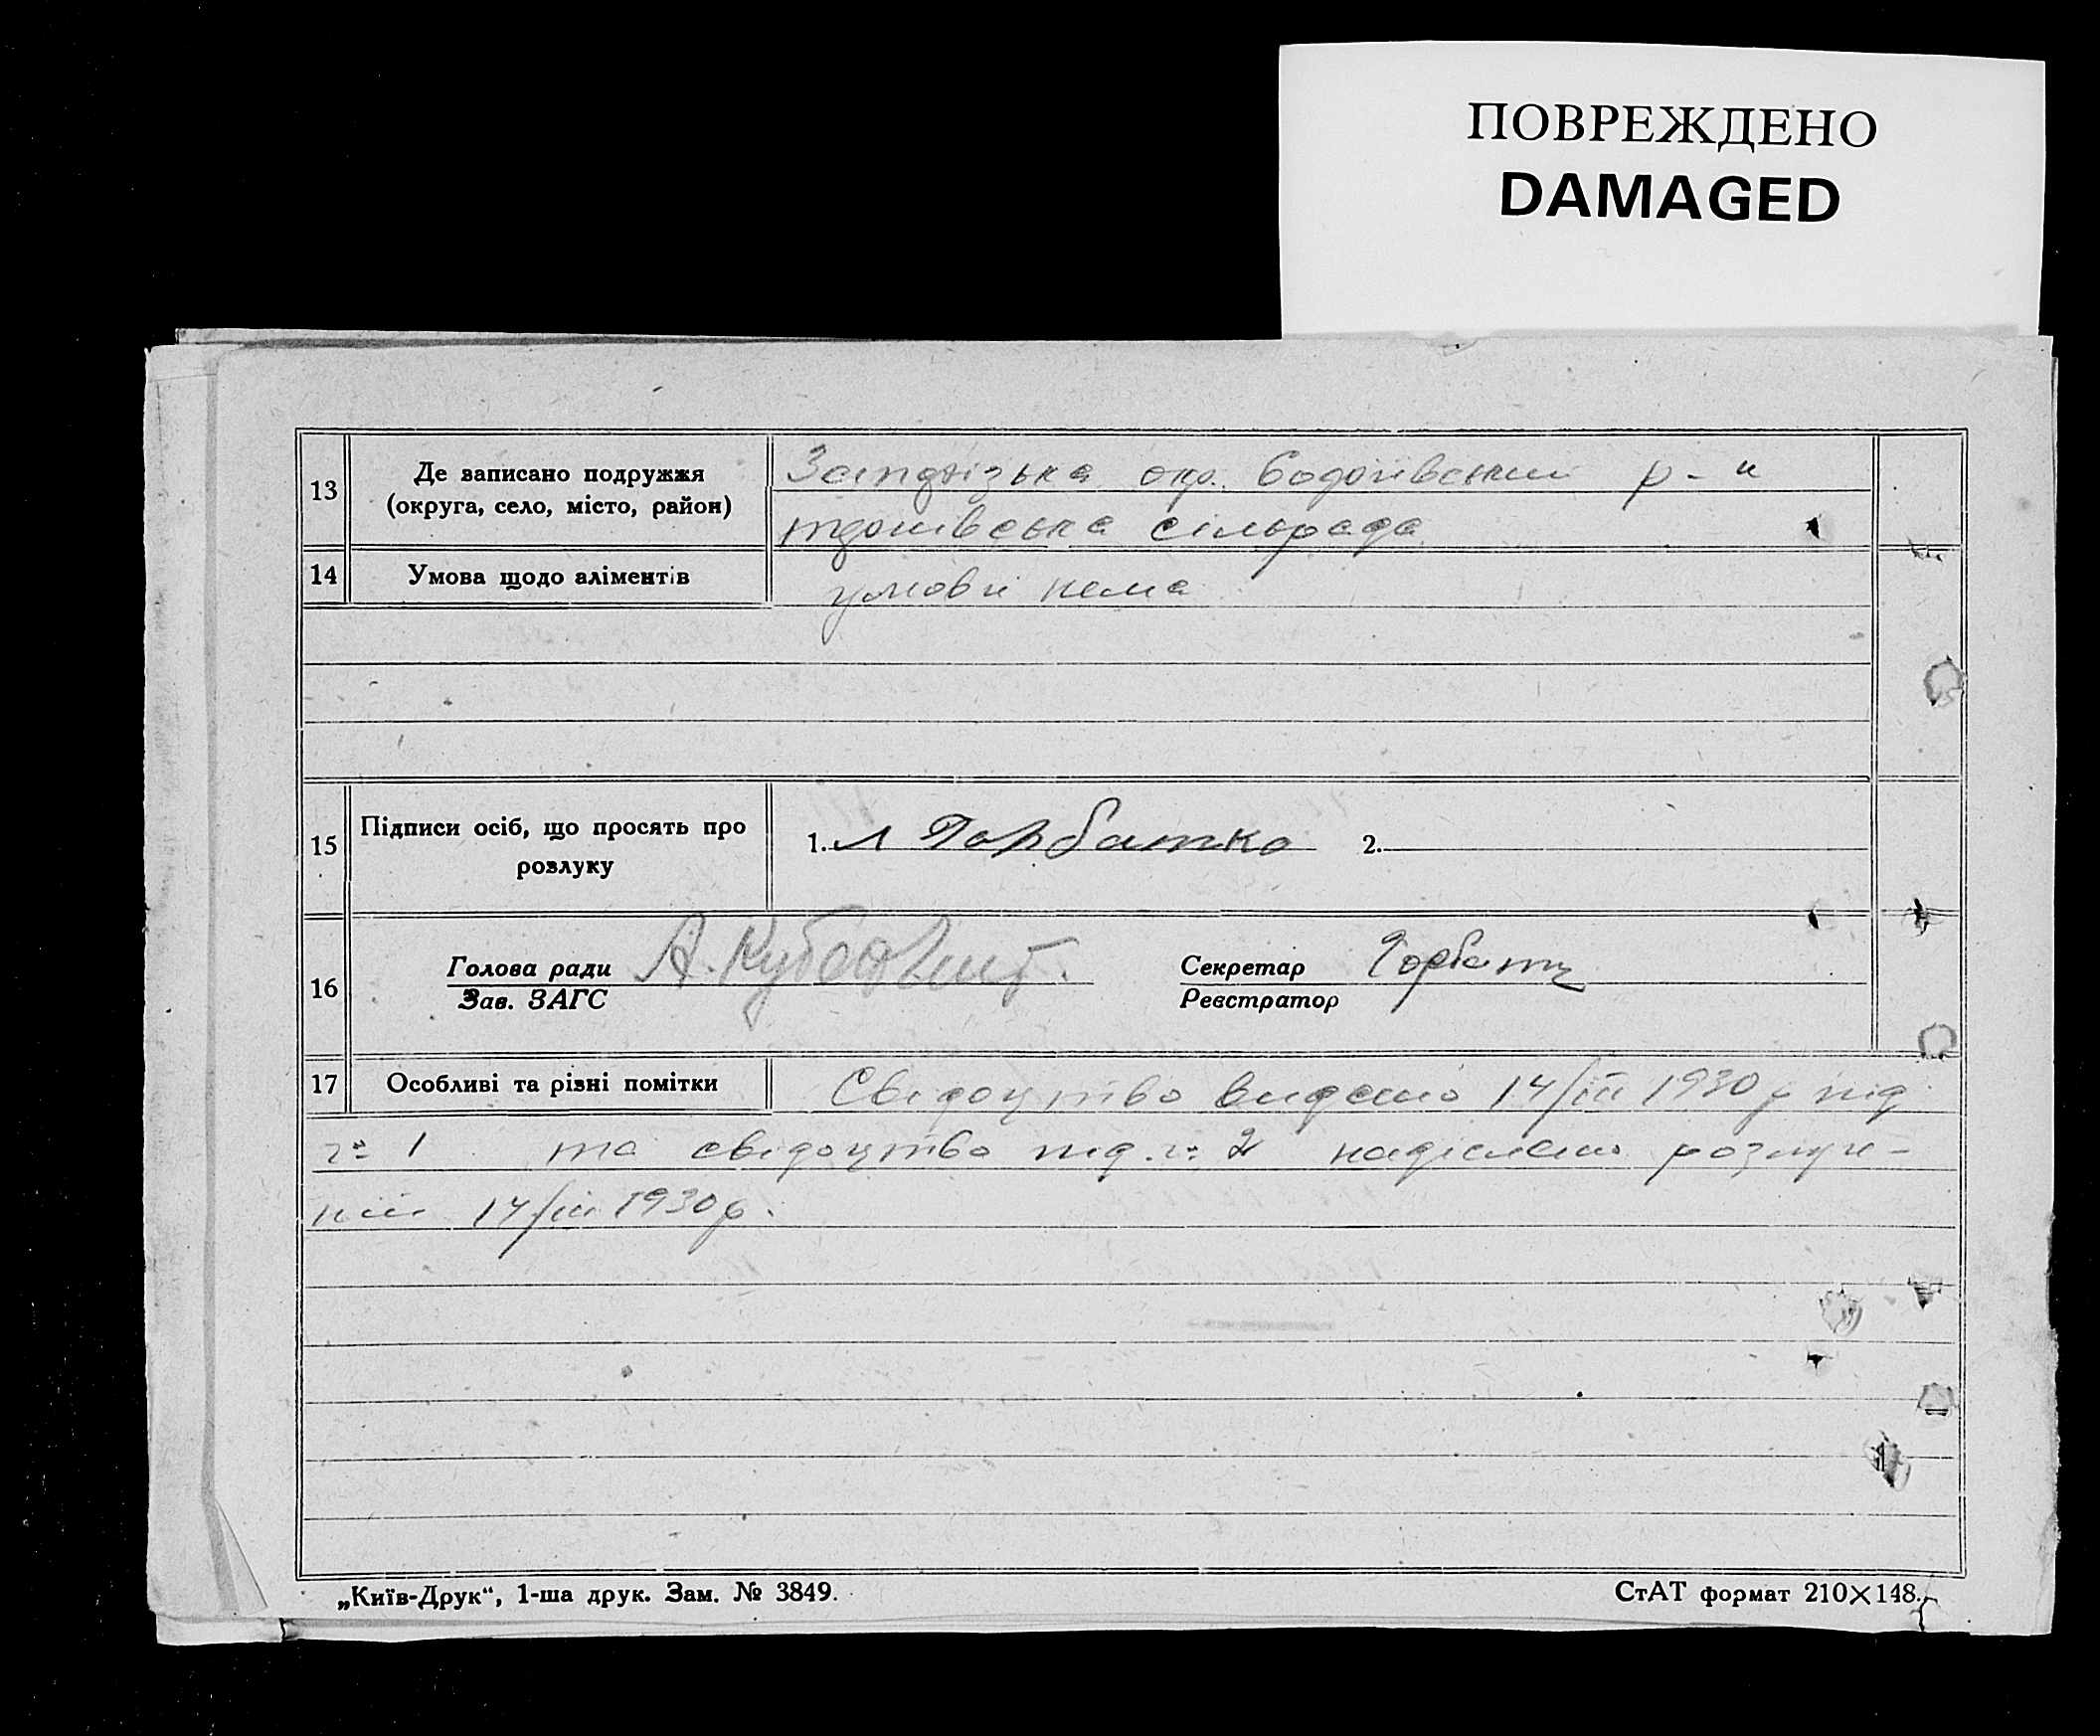 ПОВРЕЖДЕНО
DAMAGED
13 Де записано подружжя (округа, село, місто, район) окр. р-н
сільрада
14 Умова щодо аліментів умови нема
15 Підписи осіб, що просять про розлуку 1. Л Горбатко 2.
16 Голова ради Секретар
Зав. ЗАГС Реєстратор
17 Особливі та різні помітки Свідоцтво видано 14/III 1930 р під
№ 1 та свідоцтво під № 2 надіслано розлуче-
ній 14/III 1930 р.
„Київ-Друк“, 1-ша друк. Зам. № 3849. СтАТ формат 210×148.